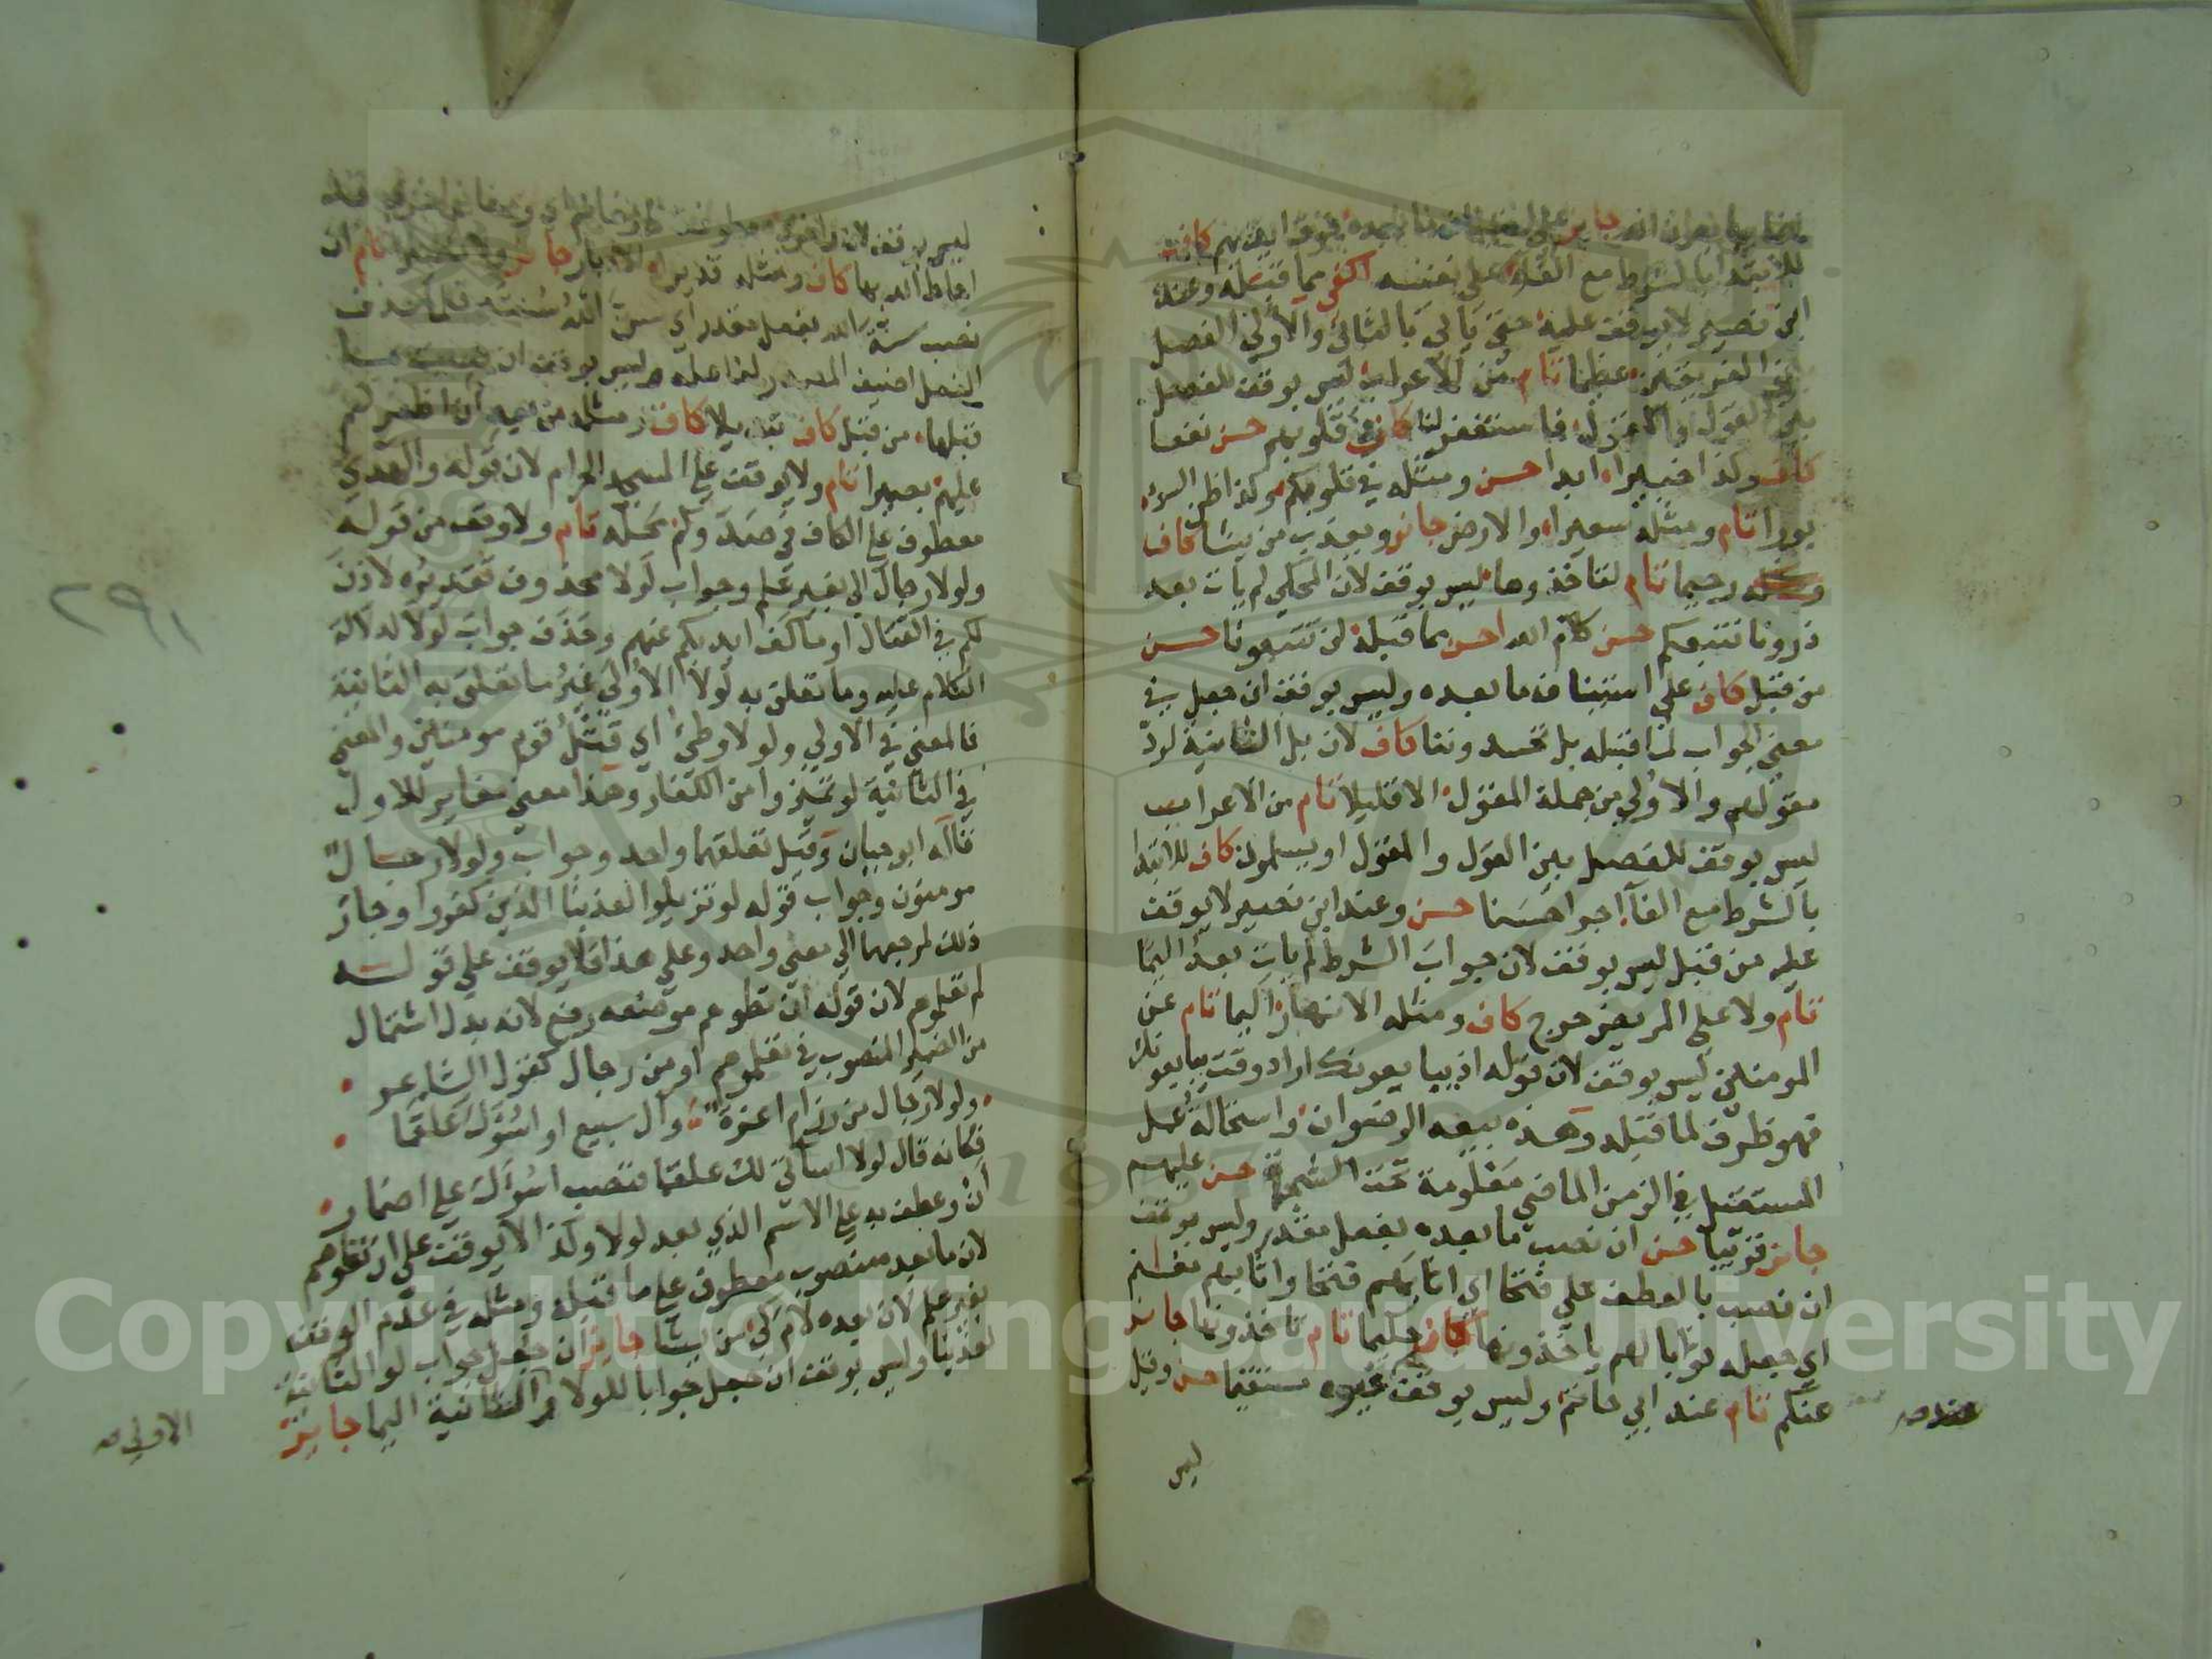 للابتدا بالشرط مع الفاء على نفسه اكفى مما قبله وعند
ابن نصير لا يوقف عليه حتى يأتي بالثاني والاولى الفصل
بين الفريقين عظيما تام من الاعراب ليس بوقف للفصل
بين القول والمقول فاستغفر لنا كاف في قلوبهم حسن نفعا
كاف وكذا خبيرا ابدا حسن ومثله في قلوبكم وكذا ظن السوء
بورا تام ومثله سعيرا والارض جائز ويعذب من يشا كاف
رحيما تام لتأخذوها ليس بوقف لان المحكي لم يأت بعد
ذرونا نتبعكم حسن كلام الله احسن مما قبله لن تتبعونا حسن
من قبل كاف على استئناف ما بعده وليس بوقف ان جعل في
معنى الجواب لما قبله بل تحسدوننا كاف لان بل الثانية لرد
مقولهم والاولى من جملة المقول الا قليلا تام من الاعراب
ليس بوقف للفصل بين القول والمقول او يسلمون كاف للابتدا
بالشرط مع الفآ اجرا حسنا حسن وعند ابن نصير لا يوقف
عليه من قبل ليس بوقف لان جواب الشرط لم يات بعد اليما
تام ولا على المريض حرج كاف ومثله الانهار اليما تام عن
المومنين ليس بوقف لان قوله اذ يبايعونك اراد وقت يبايعونك
فهو ظرف لما قبله وهذه بيعه الرضوان واستحالة عمل
المستقبل في الزمن الماضي معلومة تحت الشجرة حسن عليهم
جائز قريبا حسن ان نصب ما بعده بفعل مقدر وليس بوقف
ان نصب بالعطف على فتحا اي اثابهم فتحا واثابهم مغانم
اي جعله ثوابا لهم ياخذونها كاف حكيما تام تاخذونها جائز
عنكم تام عند ابي حاتم وليس بوقف عند غيره مستقيما حسن وقيل
ليس
ليس بوقف لان واخرى معطوفة على ومغانم اي ومغانم اخرى قد
احاط الله بها كاف ومثله قديرا الادبار جائز ولا نصيرا تام ان
نصب سنة الله بفعل مقدر اي سن الله سنته فلما حذف
الفعل اضيف المصدر لفاعله وليس بوقف ان نصبت بما
قبلها من قبل كاف تبديلا كاف ومثله من بعد ان اظفركم
عليهم بصيرا تام ولا يوقف على المسجد الحرام لان قوله والهدي
معطوف على الكاف في صدوكم محله تام ولا وقف من قوله
ولولا رجال الى بغير علم وجواب لولا محذوف تقديره لاذن
لكم في القتال او ما كف ايديكم عنهم وحذف جواب لولا لدلالة
الكلام عليه وما تعلق به لولا الاولى غير ما تعلق به الثانية
فالمعنى في الاولى ولولا وطئ اي قتل قوم مومنين والمعنى
في الثانية لو تميزوا من الكفار وهذا معنى مغاير للاول
قاله ابو حيان وقيل تعلقهما واحد وجواب ولولا رجال
مومنون وجواب قوله لو تزيلوا لعذبنا الذين كفروا وجاز
ذلك لمرجعهما الى معنى واحد وعلى هذا فلا يوقف على قوله
لم تعلموهم لان قوله ان تطوهم موضعه رفع لانه بدل اشتمال
من الضمير المنصوب في تعلموهم او من رجال كقول الشاعر
ولولا رجال من رزام اعزة وآل سبيع او اسوأك علقما
فكانه قال لولا اساتي لك علقما فنصب اسوأك على اضمار
ان وعطف به على الاسم الذي بعد لولا ولذا لا يوقف على ان تطوهم
لان ما بعد منصوب معطوف على ما قبله ومثله في عدم الوقف
بغير علم لان بعده لام كي من يشا جائز ان جعل جواب لو الثانية
لعذبنا وليس بوقف ان جعل جوابا للولا والثانية اليما جائز
الاولى صح
٢٩١